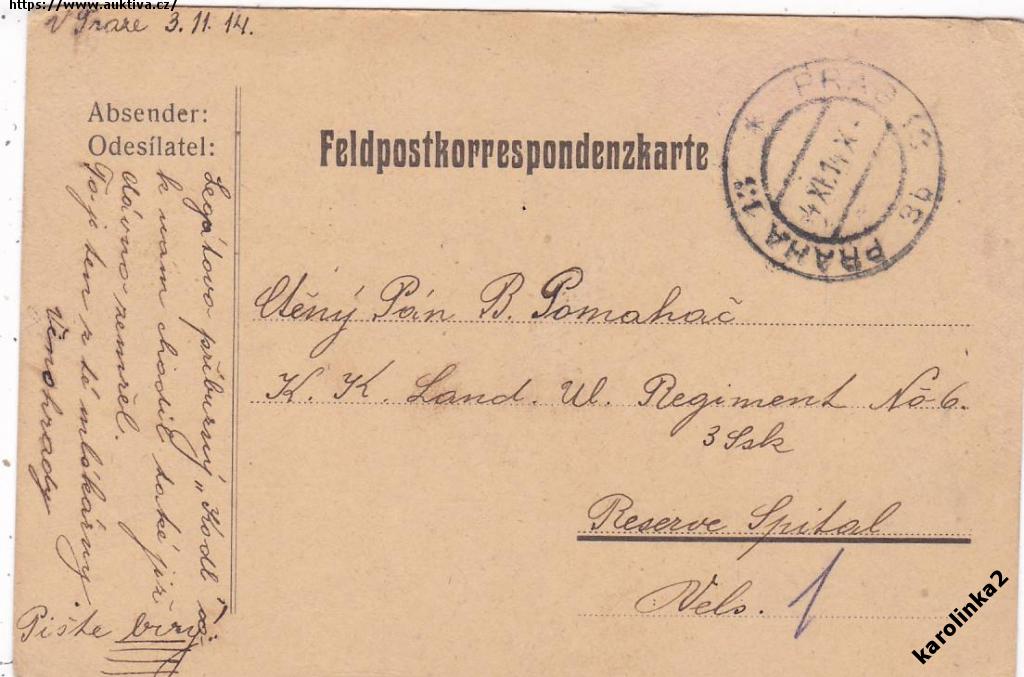 https://www.auktiva.cz/
V Praze 3. 11. 14.
Absender:
Odesílatel:
Feldpostkorrespondenzkarte
PRAG 13 3b
PRAHA 13
4 XI.14 X
Ctěný Pán B. Pomahač
K. K. Land. Ul. Regiment No 6.
3 Ssk
Reserve Spital
Vels. 1
Legátovo příbuzný „Kodl"
k nám chodil také již
dávno zemřel.
To je ten z té mlékárny.
Vinohrady
Pište brzy
karolinka2